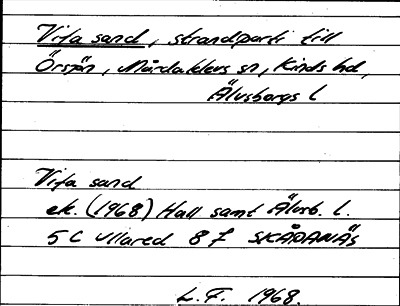 Vita sand, strandparti till
Örsjön, Mårdaklevs sn, Kinds hd,
Älvsborgs l
Vita sand
ek. (1968) Hall samt Älvsb. l.
5 C Ullared 8 f SKÅPANÄS
L. F. 1968.